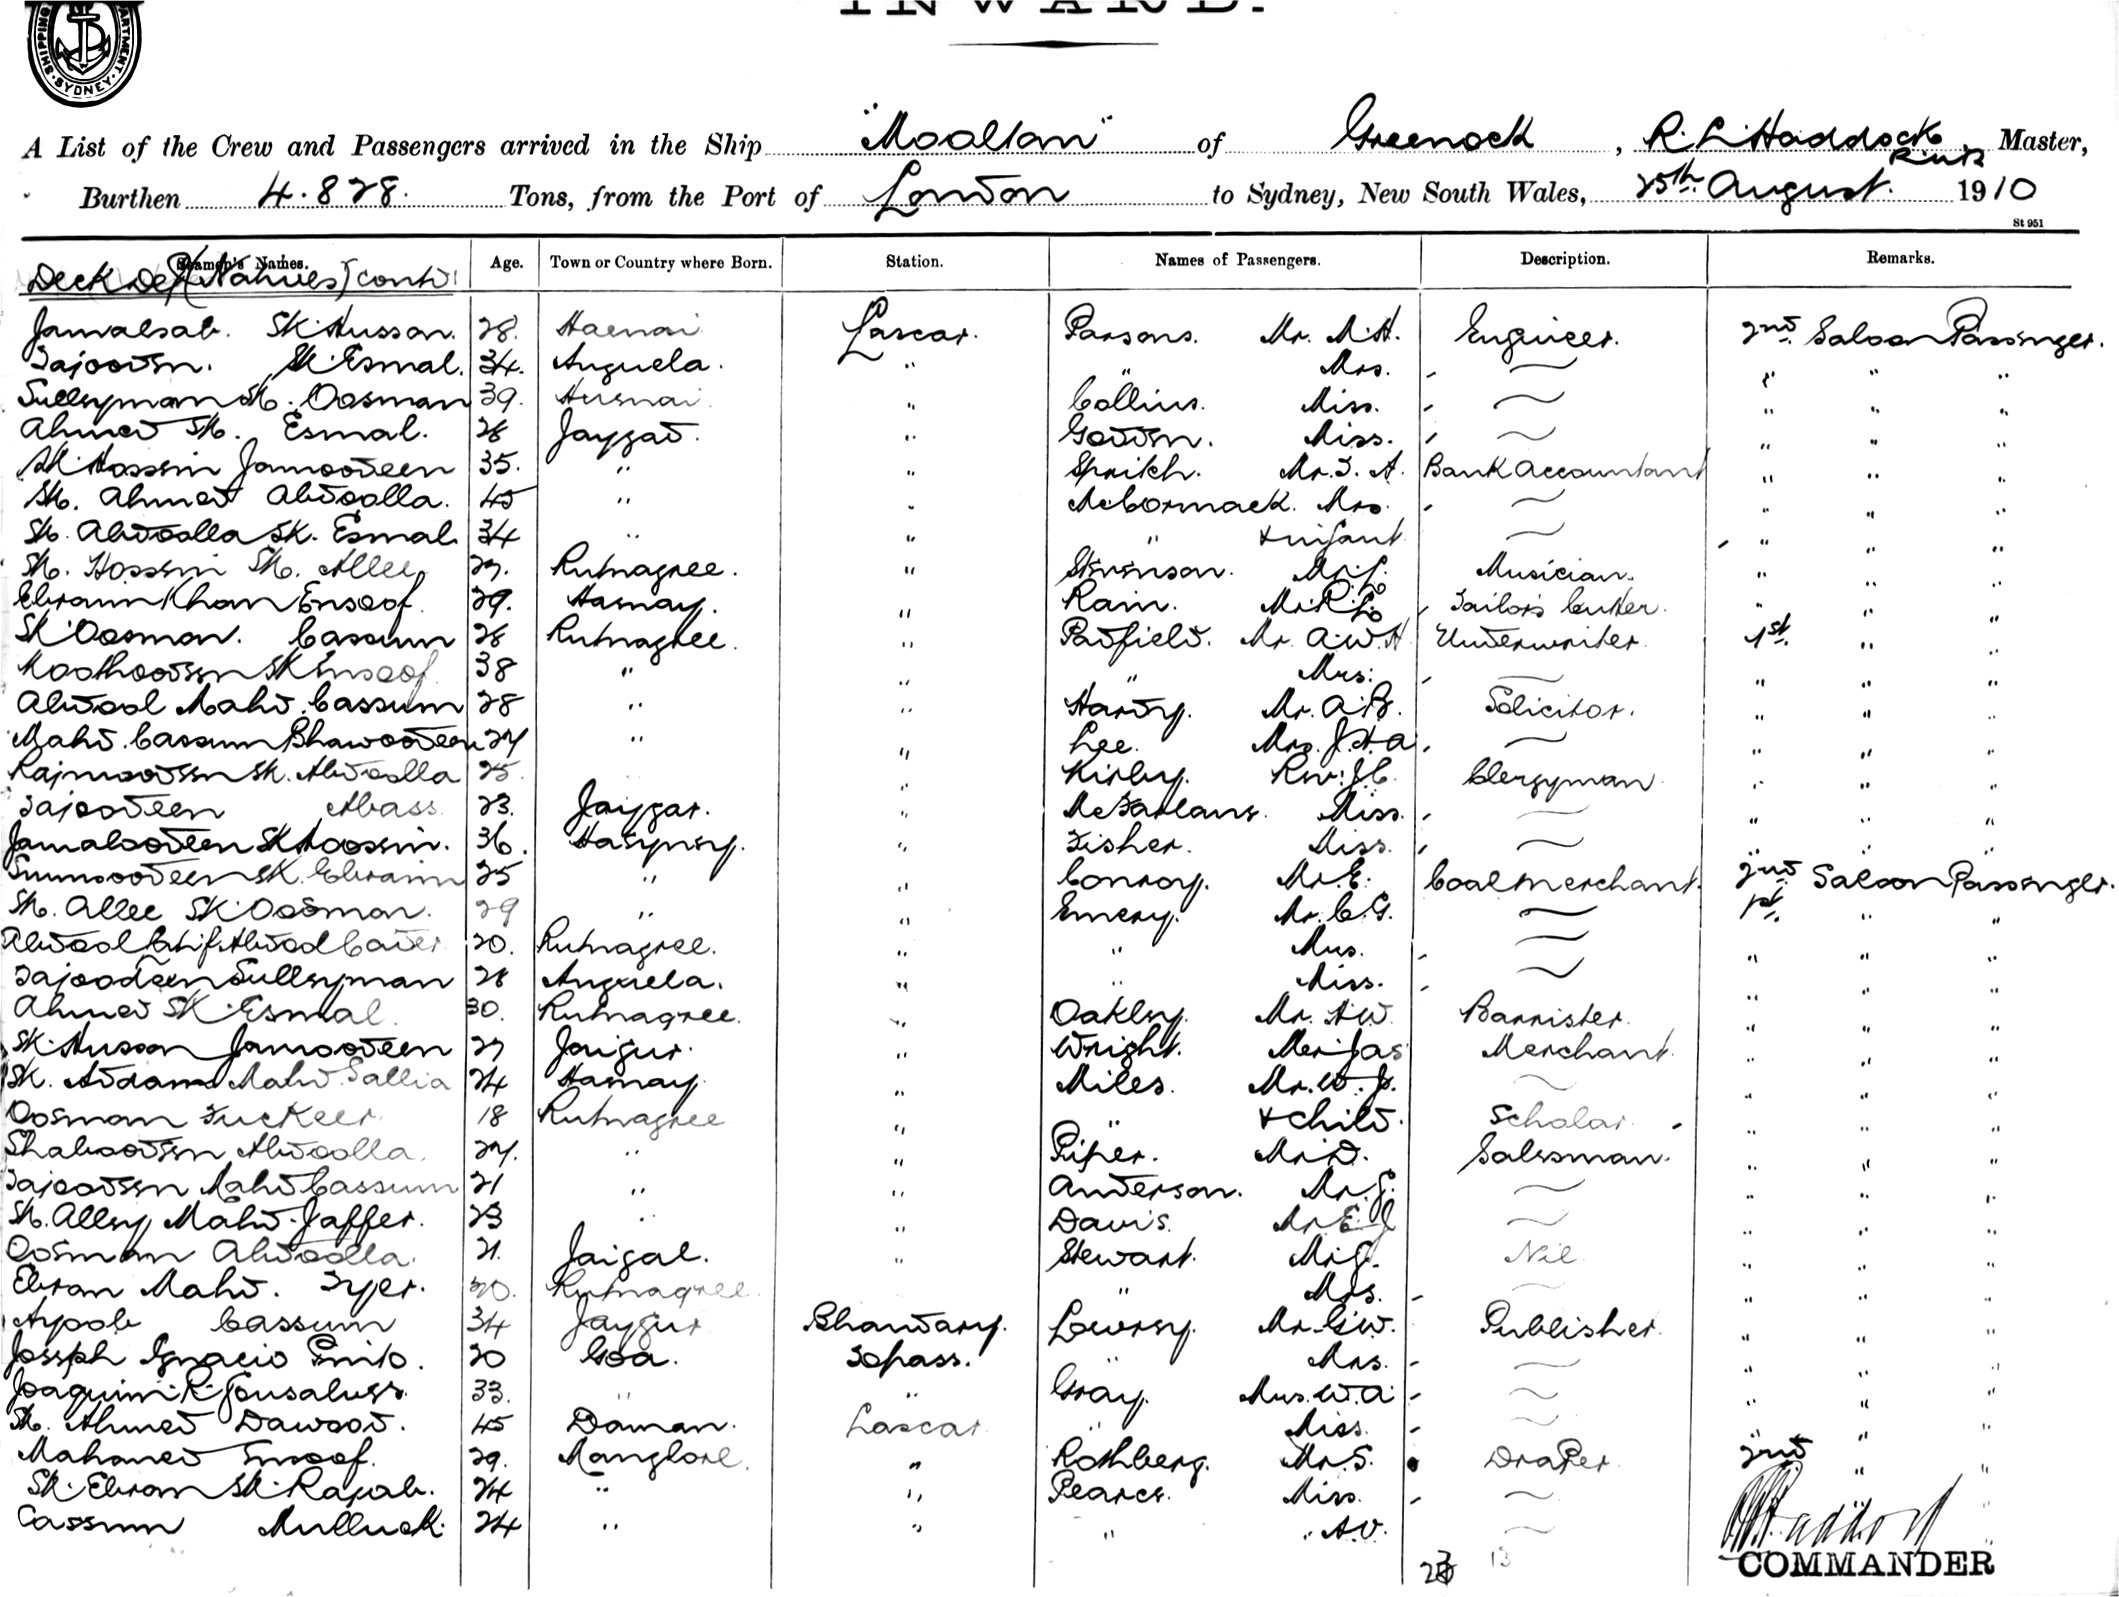 SHIPPING DEPARTMENT SYDNEY
INWARD.
A List of the Crew and Passengers arrived in the Ship "Mooltan" of Greenock, R. L. Haddock R.N.R. Master,
Burthen 4.828. Tons, from the Port of London to Sydney, New South Wales, 25th August. 1910
St 951
Seamen's Names. Age. Town or Country where Born. Station. Names of Passengers. Description. Remarks.
Deck Dept (Natives) contd:
Jamalsab. Sk. Hussan. 28. Lascar. Parsons. Mr. Engineer. 2nd Saloon Passenger.
Tajoodin. Sk. Esmal. 34. Anguela. " " Mrs. - " " "
Sulleyman Sk. Oosman 39. " Collins. Miss. - " " "
Ahmed Sk. Esmal. 28 Jaygad. " Godwin. Miss. - " " "
Sk. Hossein Jamoodeen 35. " " Mr. Bank Accountant " " "
Sk. Ahmed Abdoolla. 45 " " McCormack. Mrs. - " " "
Sk. Abdoolla Sk. Esmal. 34 " " " & infant - " " "
Sk. Hossein Sk. Allee 27. Rutnagree. " Stevenson. Mr. Musician. " " "
Ebraim Khan 29. " Rain. Mr. R. Tailors Cutter. " " "
Sk Oosman. Cassum 28 Rutnagree. " Padfield. Mr. A.W.H Underwriter. 1st. " "
38 " " " Mrs. - " " "
Abdool Mahd. Cassum 28 " " Hardy. Mr. A.B. Solicitor. " " "
Mahd. Cassum Bhawoodeen 24 " " Lee. Mrs. J.H.A. - " " "
Sk. Abdoolla 25 " Kirby. Rev. J.C. Clergyman " " "
Tajoodeen Abass. 23. Jaygar. " McFarlane. Miss. - " " "
Jamaloodeen Sk Hoossein. 36. " Fisher. Miss. - " " "
Sk. Ebraim 25 " " Conroy. Mr. E. Coal Merchant. 2nd Saloon Passenger.
Sk. Allee Sk Oosman. 29 " " Emery. Mr. C.G. 1st. " "
Abdool Latif Abdool Cader 20. Rutnagree. " " Mrs. - " " "
Tajoodeen Sulleyman 28 Anguela. " " Miss. - " " "
Ahmed Sk. Esmal. 30. Rutnagree. " Oakley. Mr. H.W. Barrister. " " "
Sk. Hussan Jamoodeen 27 Jaigur. " Wright. Mr. Jas Merchant. " " "
Sk. Addam Mahd. Sallia 24 Harnay. " Miles. Mr. W. J. " " "
Oosman Fuckeer. 18 Rutnagree " " & child. Scholar. - " " "
Shaboodeen Abdoolla. 24. " " Piper. Mr. D. Salesman. " " "
Tajoodeen Mahd Cassum 21 " " Anderson. Mr. G. " " "
Sk. Alley Mahd. Jaffer. 23 " " Davis. Mr. E. J " " "
Oosman Abdoolla. 21. Jaigal. " Stewart. Mr. G. Nil " " "
Ebran Mahd. 20. Rutnagree. " Mrs. - " " "
Ayoob Cassum 34 Jaygur Bhandary. Lowrey. Mr. G.W. Publisher. " " "
Joseph Ignacio Pinto. 20 Goa. Topass. " Mrs. - " " "
Joaquim. R. Gonsalves. 33. " " Gray. Mrs. W.A. - " " "
Sk. Ahmed Dawood. 45 Daman. Lascar. " Miss. " " "
Mahomed Essoof. 29. Manglore. " Rothberg. Mr. S. Draper. 2nd " "
Sk. Ebram Sk. Rajab. 24 " " Pearce. Miss. - "
Cassum Mulluck. 24 " " " " A.V.
Haddock
23 13
COMMANDER